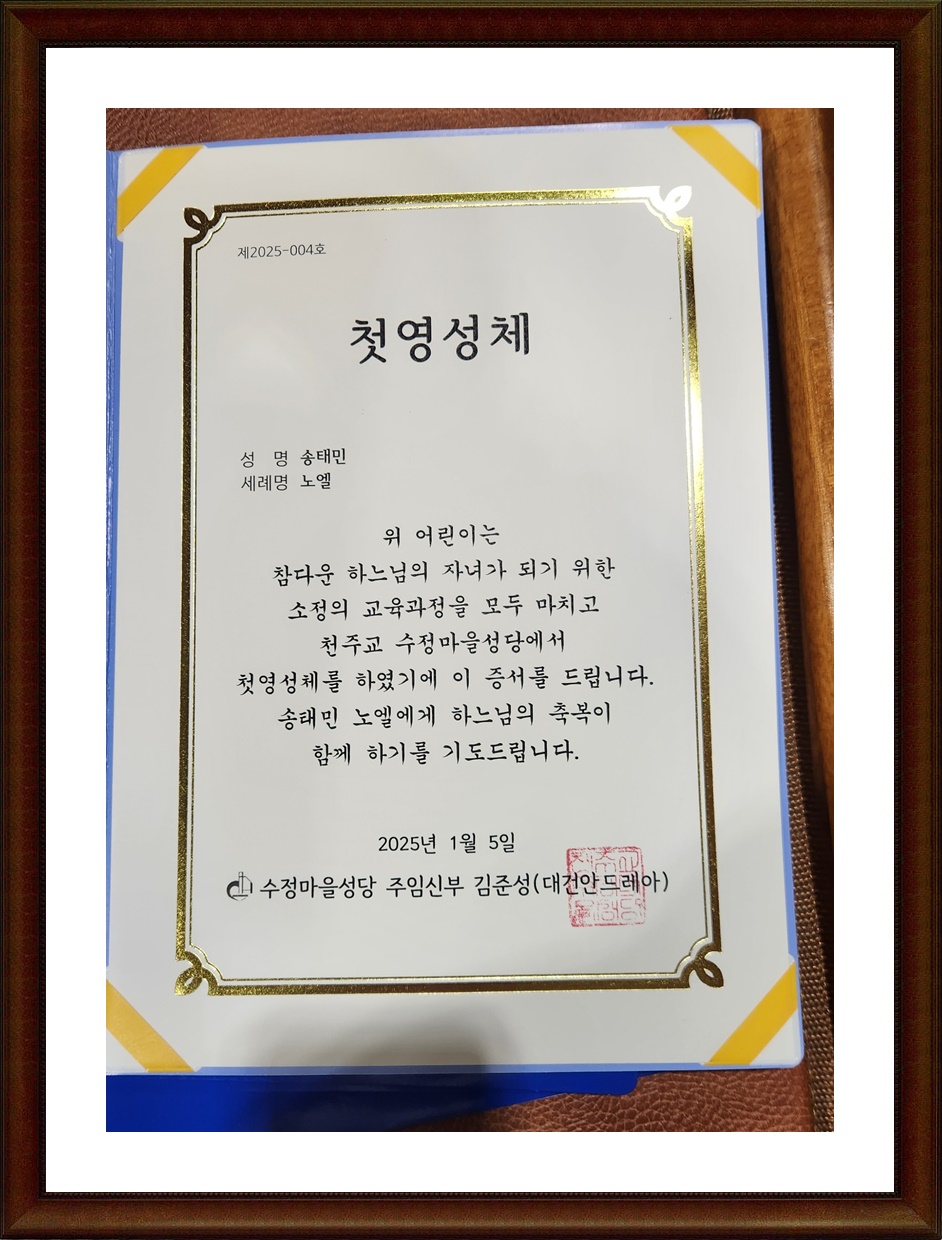 제2025-004호
첫영성체
성 명 송태민
세례명 노엘
위 어린이는
참다운 하느님의 자녀가 되기 위한
소정의 교육과정을 모두 마치고
천주교 수정마을성당에서
첫영성체를 하였기에 이 증서를 드립니다.
송태민 노엘에게 하느님의 축복이
함께 하기를 기도드립니다.
2025년 1월 5일
수정마을성당 주임신부 김준성(대건안드레아)